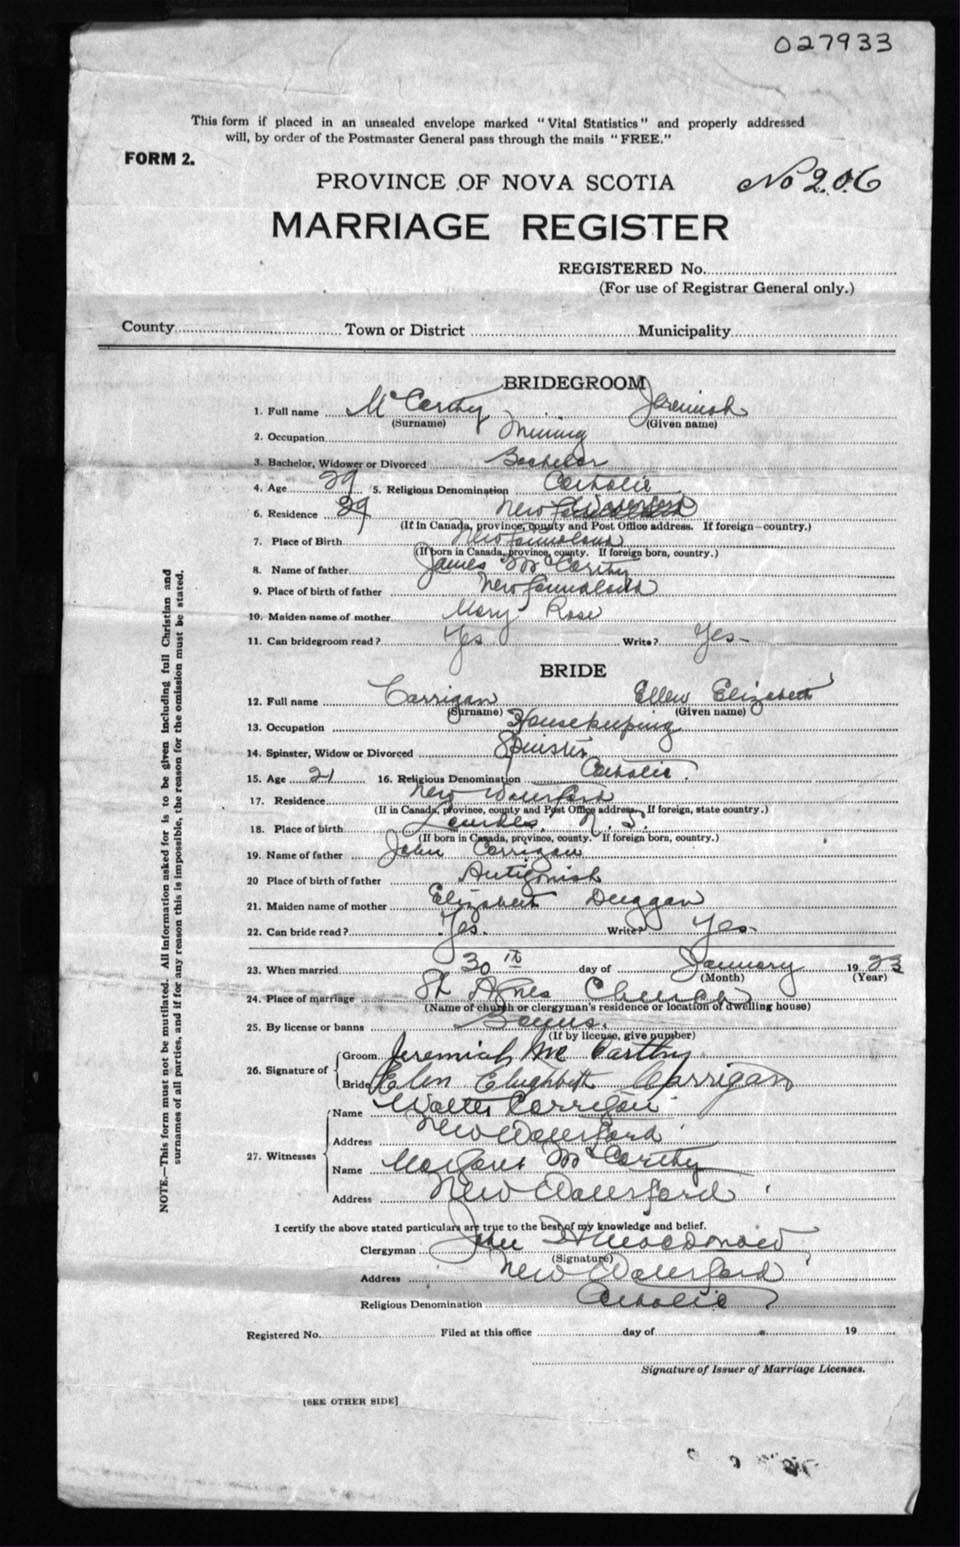 027933
This form if placed in an unsealed envelope marked "Vital Statistics" and properly addressed
will, by order of the Postmaster General pass through the mails "FREE."
FORM 2.
PROVINCE OF NOVA SCOTIA No 206
MARRIAGE REGISTER
REGISTERED No.
(For use of Registrar General only.)
County Town or District Municipality
BRIDEGROOM
1. Full name McCarthy Jeremiah
(Surname) (Given name)
2. Occupation Mining
3. Bachelor, Widower or Divorced Bachelor
4. Age 29 5. Religious Denomination Catholic
6. Residence 29 New
(If in Canada, province, county and Post Office address. If foreign—country.)
7. Place of Birth Newfoundland
(If born in Canada, province, county. If foreign born, country.)
8. Name of father James McCarthy
9. Place of birth of father Newfoundland
10. Maiden name of mother Mary Rose
11. Can bridegroom read? Yes Write? Yes
BRIDE
12. Full name Carrigan Ellen Elizabeth
(Surname) (Given name)
13. Occupation Housekeeping
14. Spinster, Widow or Divorced Spinster
15. Age 21 16. Religious Denomination Catholic
17. Residence New Waterford
(If in Canada, province, county and Post Office address. If foreign, state country.)
18. Place of birth Lourdes, N. S.
(If born in Canada, province, county. If foreign born, country.)
19. Name of father John Corrigan
20 Place of birth of father Antigonish
21. Maiden name of mother Elizabeth Duggan
22. Can bride read? Yes. Write? Yes
23. When married 30th day of January 1923
(Month) (Year)
24. Place of marriage St Agnes Church
(Name of church or clergyman's residence or location of dwelling house)
25. By license or banns Banns.
(If by license, give number)
26. Signature of
Groom Jeremiah McCarthy
Bride Elen Elizhbeth Carrigan
27. Witnesses
Name Walter Corrigan
Address New Waterford
Name Margaret McCarthy
Address New Waterford
I certify the above stated particulars are true to the best of my knowledge and belief.
Clergyman John H Macdonald
(Signature)
Address New Waterford
Religious Denomination Catholic
Registered No. Filed at this office day of 19
Signature of Issuer of Marriage Licenses.
[SEE OTHER SIDE]
NOTE.—This form must not be mutilated. All information asked for is to be given including full Christian and
surnames of all parties, and if for any reason this is impossible, the reason for the omission must be stated.